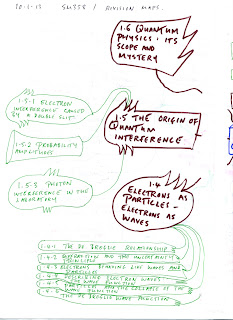 20-1-13 SM358 / REVISION MAPS.
1.6 QUANTUM
PHYSICS: ITS
SCOPE AND
MYSTERY
1.5.1 ELECTRON
INTERFERENCE CAUSED
BY A DOUBLE SLIT
1.5 THE ORIGIN OF
QUANTUM
INTERFERENCE
1.5.2 PROBABILITY
AMPLITUDES
1.5.3 PHOTON
INTERFERENCE IN THE
LABORATORY
1.4
ELECTRONS AS
PARTICLES -
ELECTRONS AS
WAVES
1.4.1 THE DE BROGLIE RELATIONSHIP
1.4.2 DIFFRACTION AND THE UNCERTAINTY
PRINCIPLE
1.4.3 ELECTRONS BEHAVING LIKE WAVES AND
PARTICLES
1.4.4 DESCRIBING ELECTRON WAVES -
THE WAVE FUNCTION
1.4.5 PARTICLES AND THE COLLAPSE OF THE
WAVE FUNCTION
THE DE BROGLIE WAVE FUNCTION